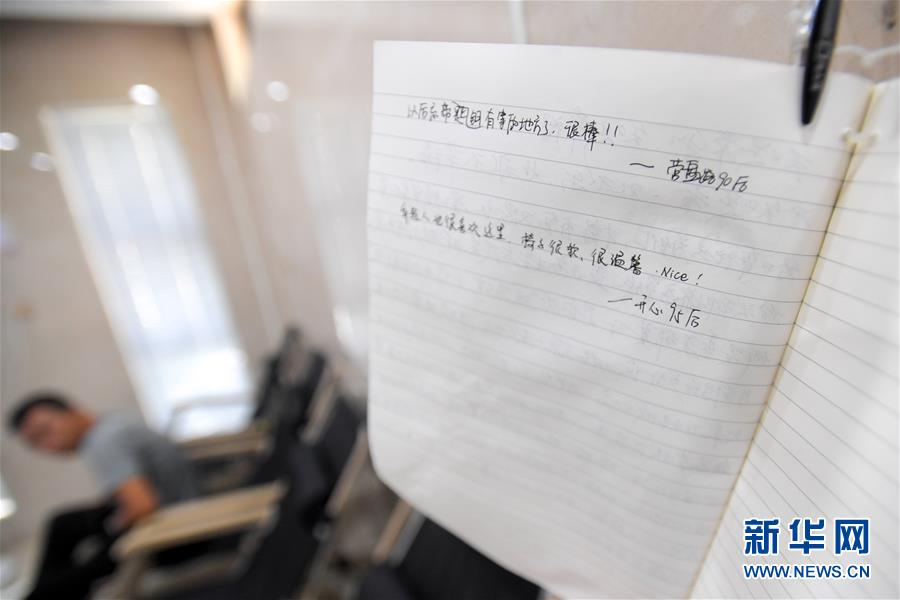 以后在带娃图有案的地方了，很棒!!
— 营盘路90后
年轻人也很喜欢这里，椅子很软，很温馨.Nice!
— 开心95后
新华网
WWW.NEWS.CN